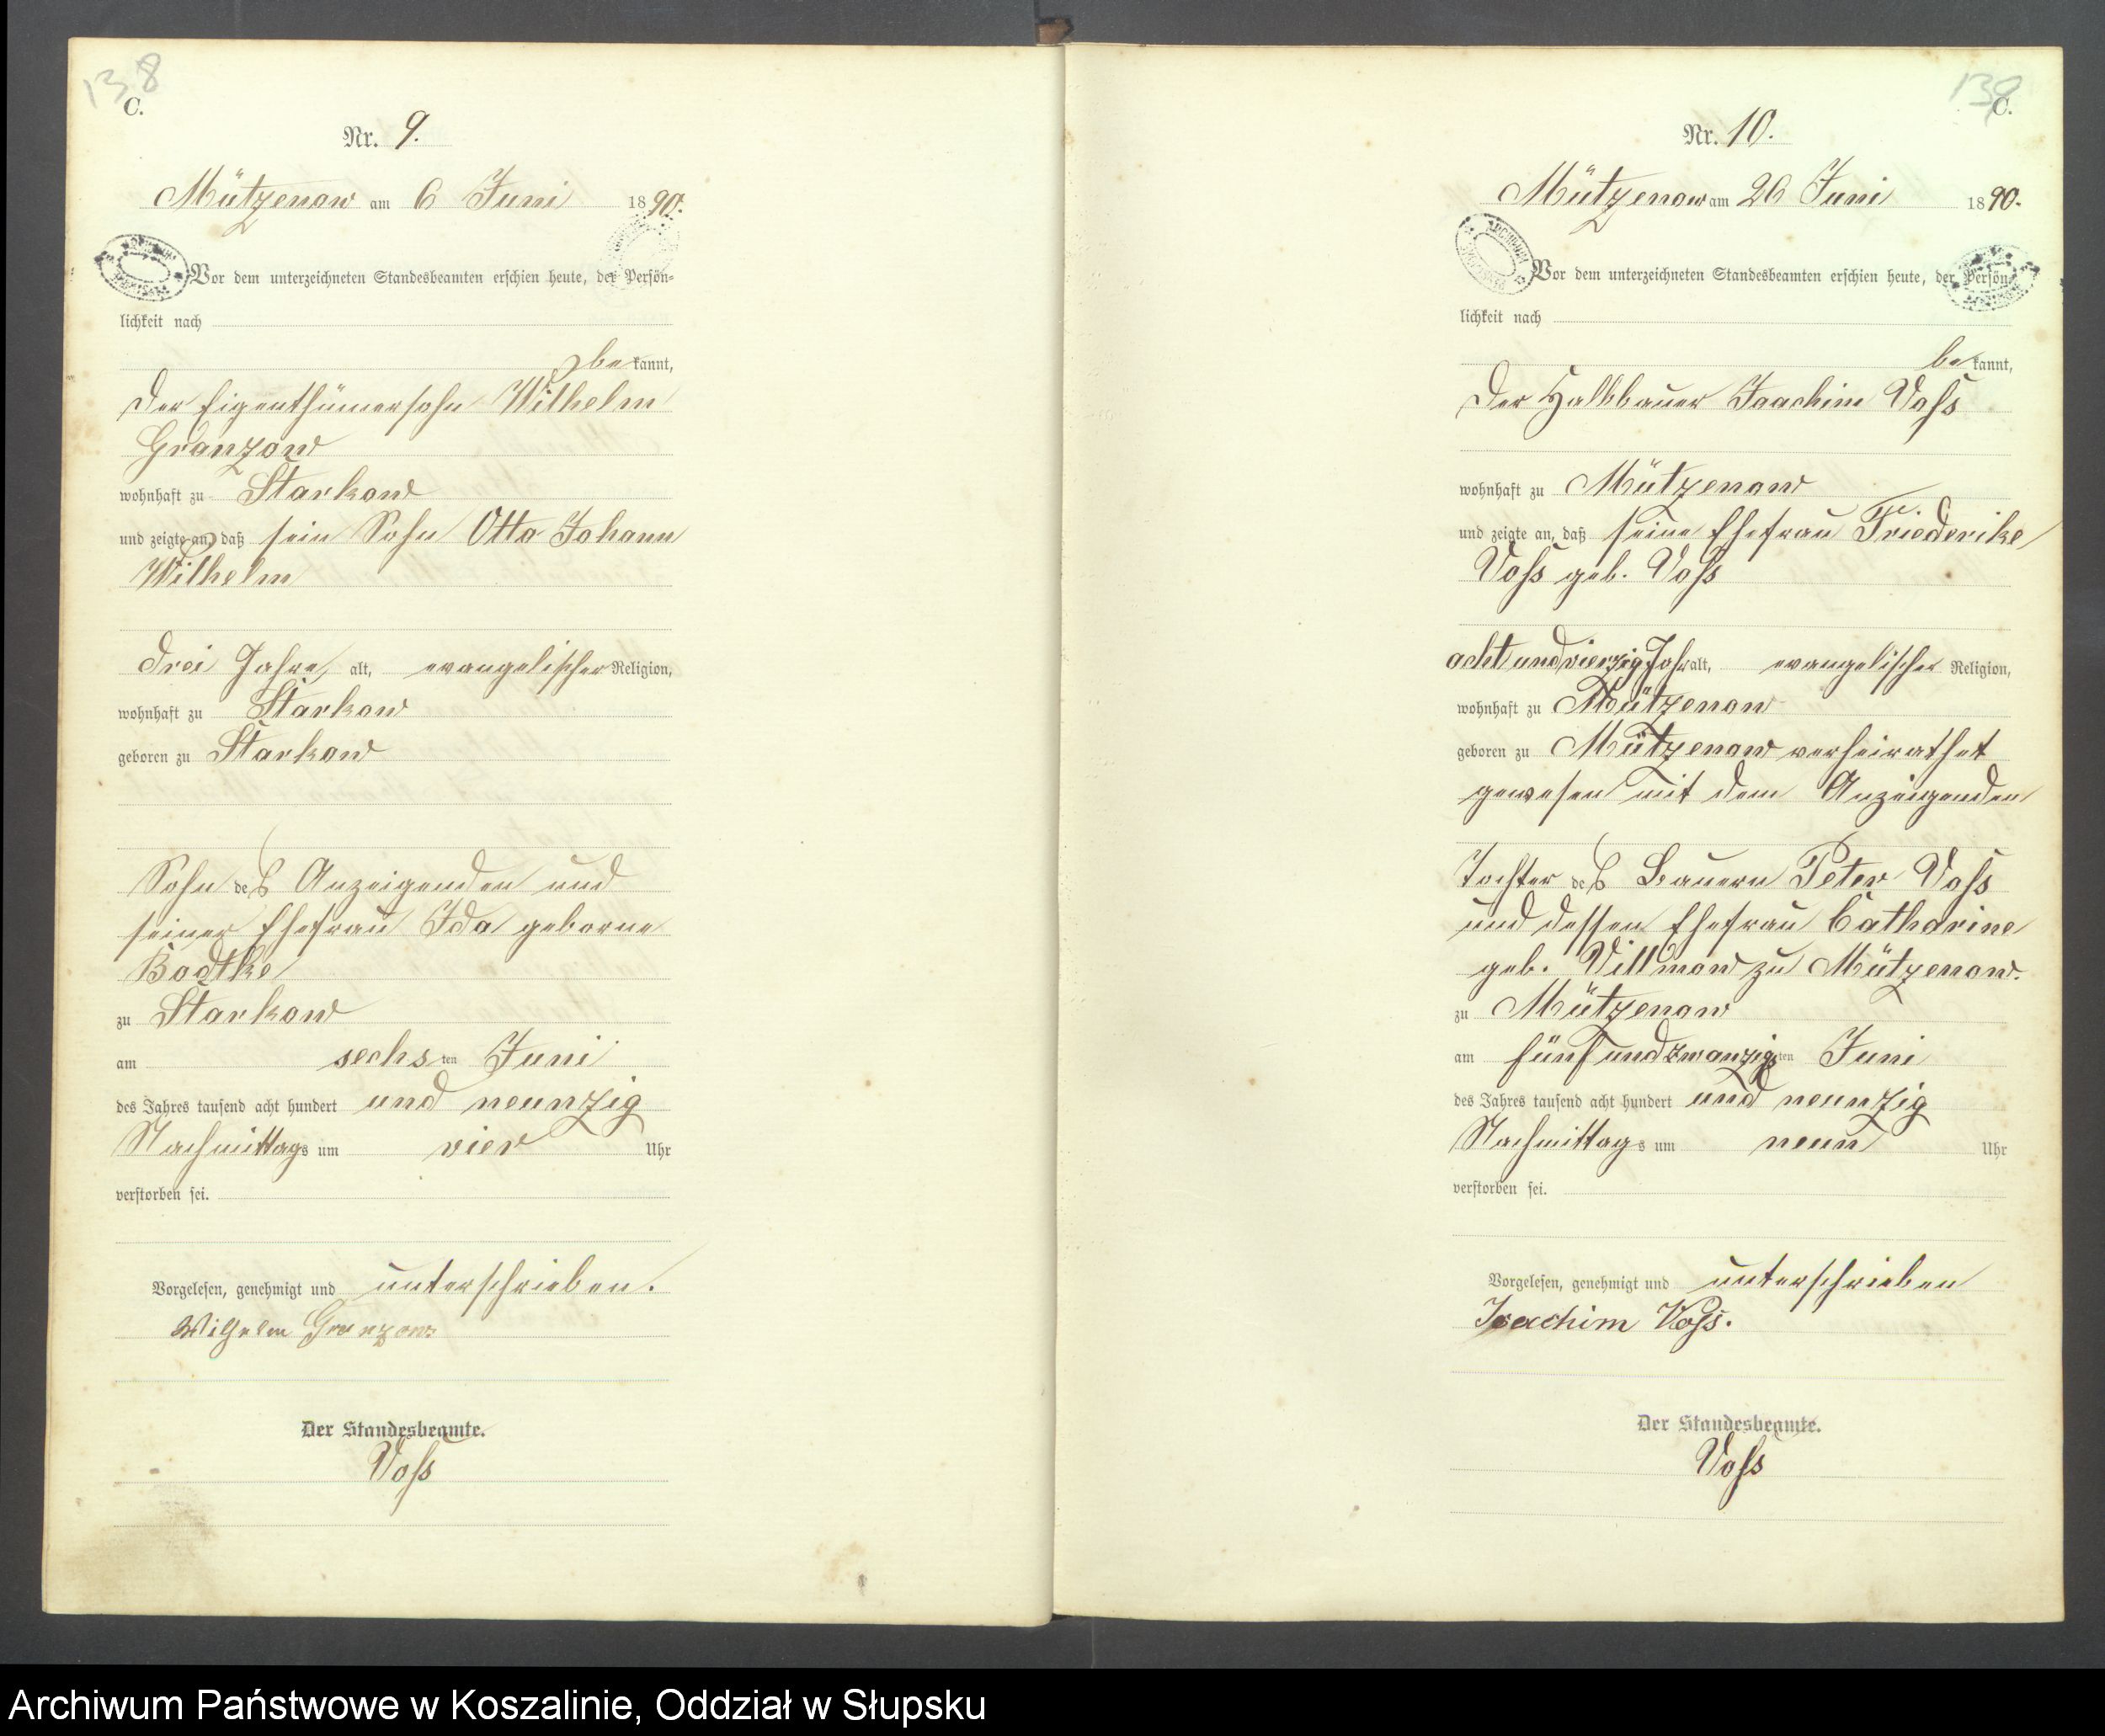 138
C.
Nr. 9.
Mützenow am 6 Juni 1890.
Vor dem unterzeichneten Standesbeamten erschien heute, der Persön-
lichkeit nach
bekannt,
der Eigenthümersohn Wilhelm
Granzow
wohnhaft zu Starkow
und zeigte an, daß sein Sohn Otto Johann
Wilhelm
drei Jahre, alt, evangelischer Religion,
wohnhaft zu Starkow
geboren zu Starkow
Sohn des Anzeigenden und
seiner Ehefrau Ida geborne
Badtke
zu Starkow
am sechsten Juni
des Jahres tausend acht hundert und neunzig
Nachmittags um vier Uhr
verstorben sei.
Vorgelesen, genehmigt und unterschrieben.
Wilhelm Granzow
Der Standesbeamte.
Voss
139
C.
Nr. 10.
Mützenow am 26 Juni 1890.
Vor dem unterzeichneten Standesbeamten erschien heute, der Persön-
lichkeit nach
bekannt,
der Halbbauer Joachim Voss
wohnhaft zu Mützenow
und zeigte an, daß seine Ehefrau Friederike
Voss geb. Voss
acht und vierzig Jahr alt, evangelischer Religion,
wohnhaft zu Mützenow
geboren zu Mützenow verheirathet
gewesen mit dem Anzeigenden
Tochter des Bauern Peter Voss
und dessen Ehefrau Catharine
geb. Villmow zu Mützenow.
zu Mützenow
am fünf und zwanzigsten Juni
des Jahres tausend acht hundert und neunzig
Nachmittags um neun Uhr
verstorben sei.
Vorgelesen, genehmigt und unterschrieben
Joachim Voss.
Der Standesbeamte.
Voss
Archiwum Państwowe w Koszalinie, Oddział w Słupsku